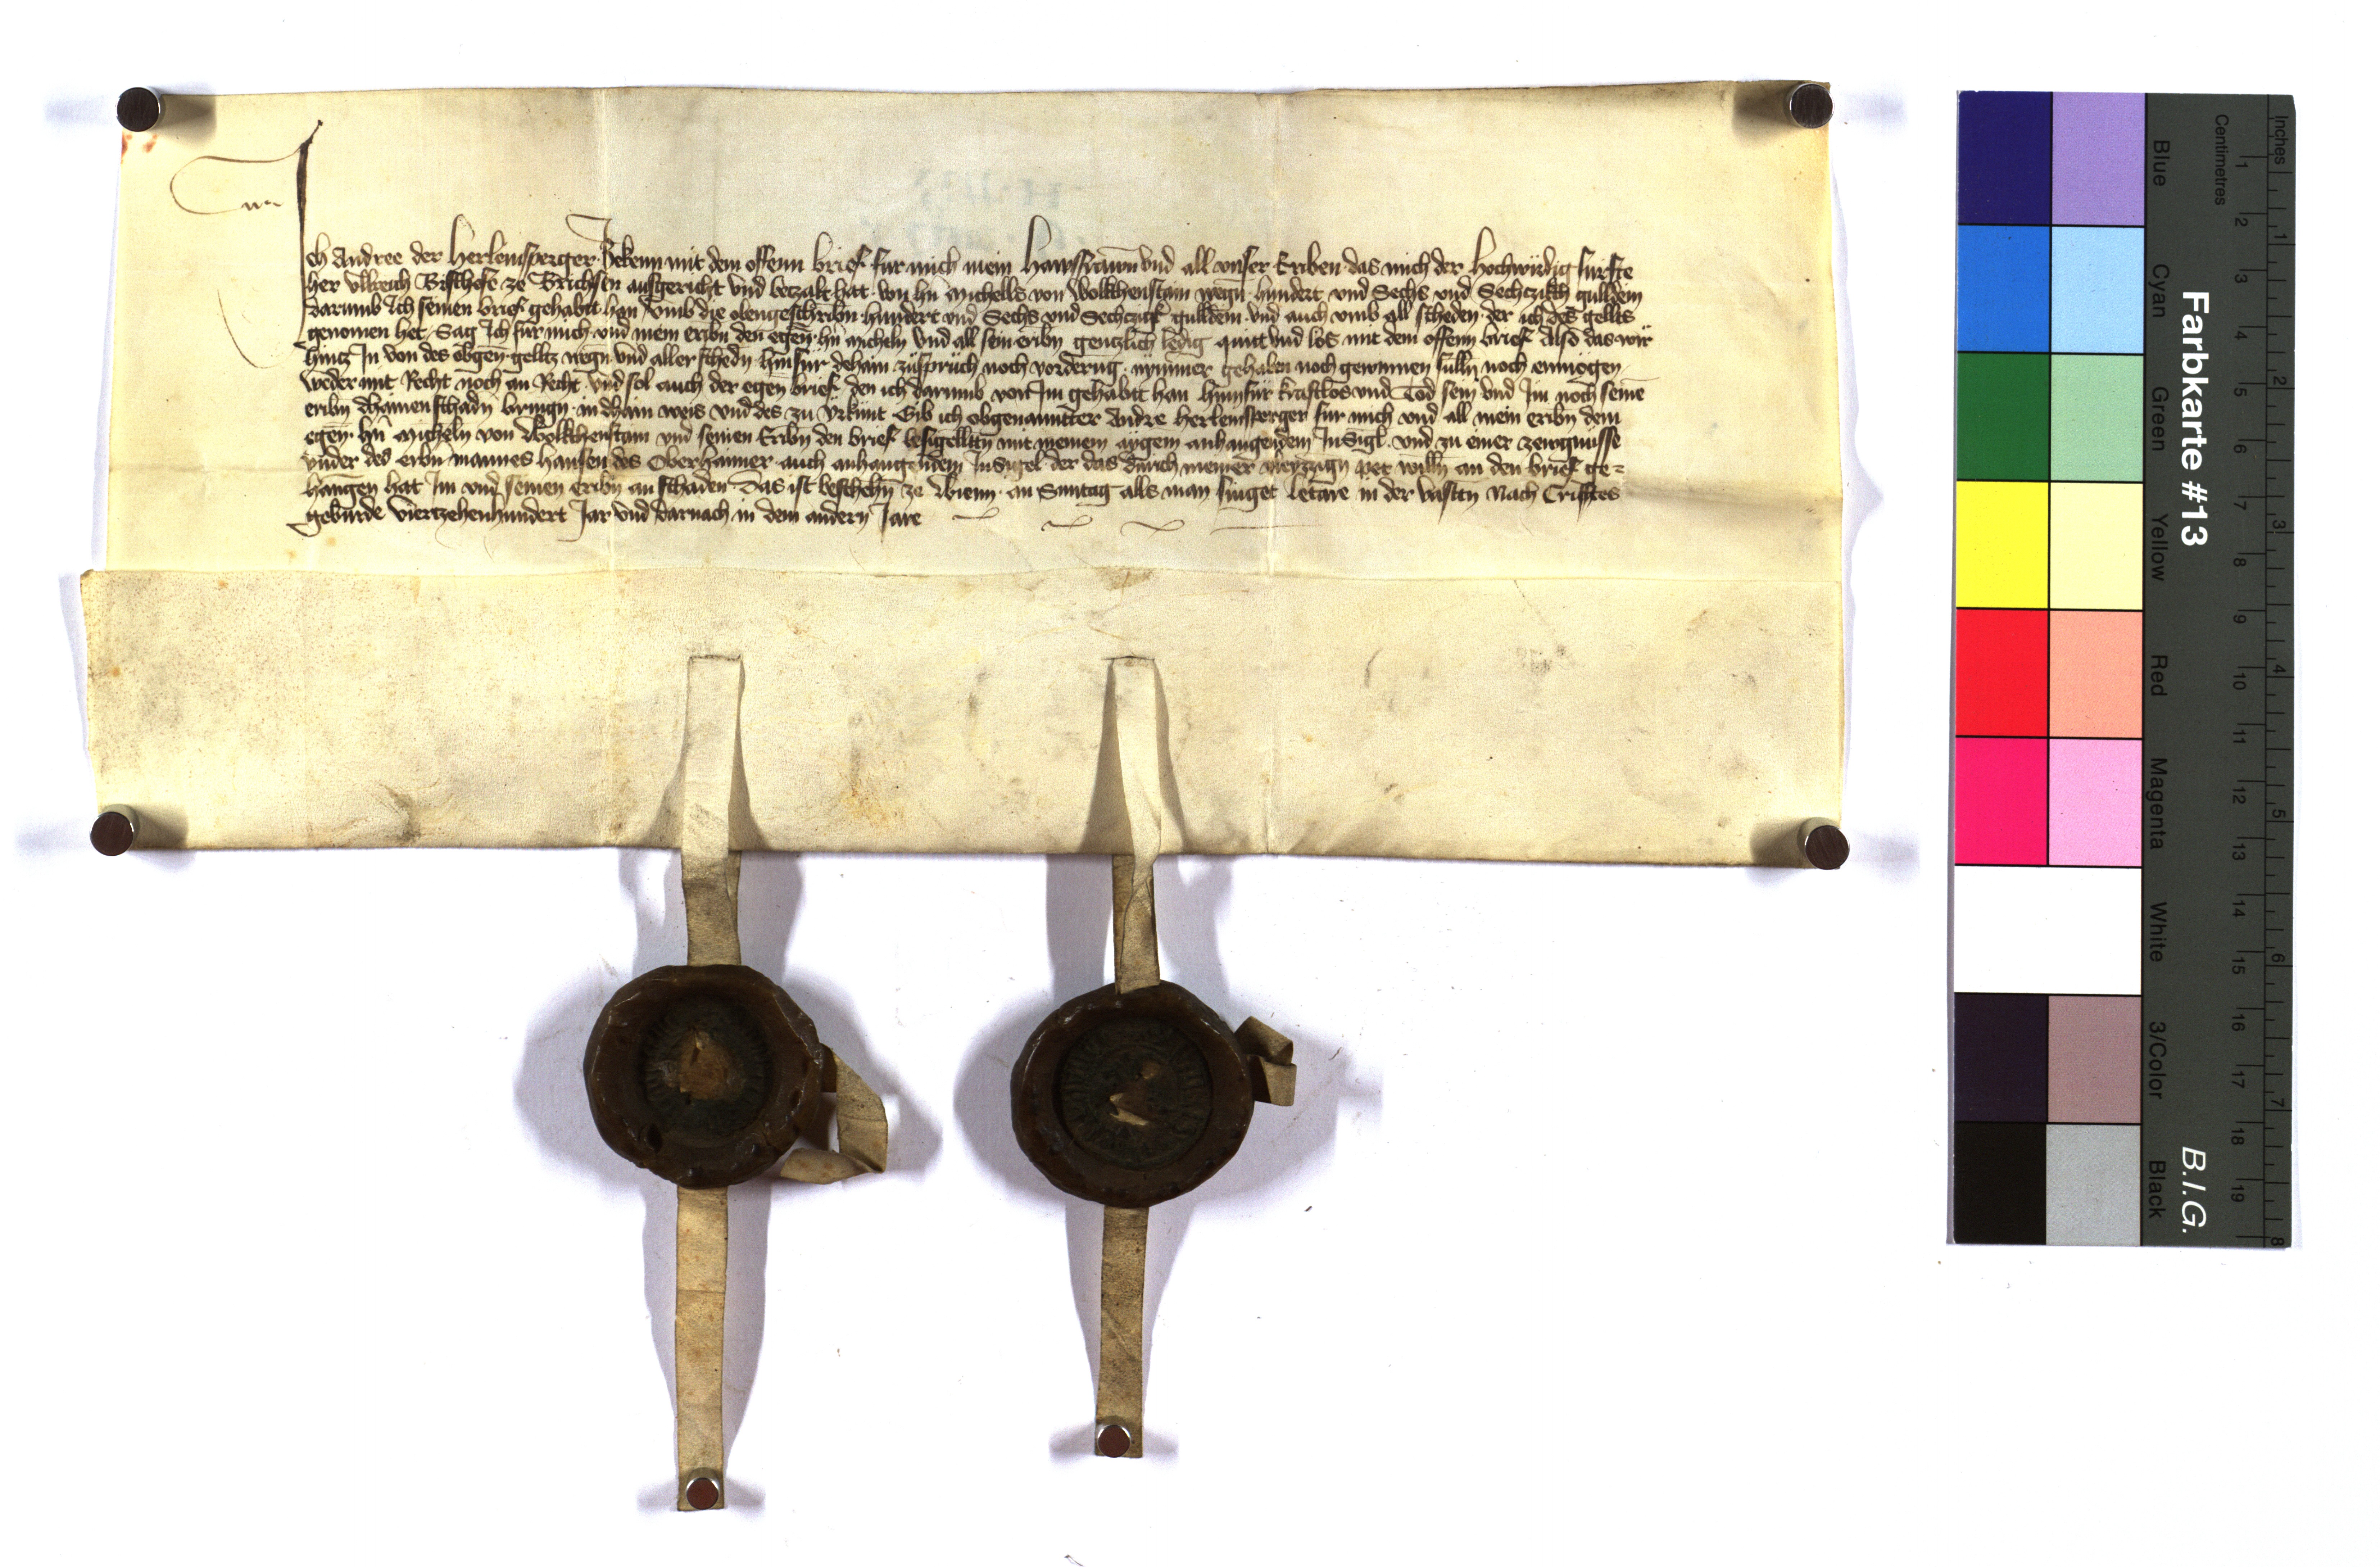 Ich Andree der Herleinsperger Bekenn mit dem offenn brief fur mich mein Hawsfrawn vnd all vnser Eriben das mich der Hochwirdig furste
her Vllreich Bischofe ze Brichsen ausgericht vnd betzalt hat von hn̄ Michells von Wolkhenstain wegn̄ hundert vnd Sechs vnd Sechczikh gulldein
darumb Ich seinen brief gehabt han vmb die obengeschribn̄ hundert vnd Sechs vnd Sechczigk gulldein vnd auch vmb all scheden der ich des gellts
genomen het Sag Ich fur mich vnd mein eribn den egen̄ hn̄ Micheln vnd all sein eribn gentzlich ledig quitt vnd los mit dem offenn brief Also das wir
hintz In von des obgen̄ gelltz wegn̄ vnd aller schedn̄ hinfur dehain zuspruch noch vordrūg nymmer gehaben noch gewinnen sulln̄ noch enmögen
weder mit Recht noch an Recht vnd sol auch der egen̄ brief den ich darumb von Im gehabt han hinnfur kraftlos vnd Tod sein vnd Im noch seinē
eribn dhainen schadn̄ bringn̄ in dhain weis vnd des zu vrkunt Gib ich obgenannter Andre Herleinsperger fur mich vnd all mein eribn dem
egen̄ hn̄ Micheln von Wolkhenstain vnd seinen Eribn den brief besigelltn̄ mit meinem aigem anhangendem Insigl vnd zu einer zewgnusse
vnder des erbn̄ mannes Hansen des Oberhaimer auch anhangendem Insigel der das durch meiner vleyzzign̄ pet willn̄ an den brief ge=
hangen hat Im vnd seinen eribn an schaden Das ist beschehn̄ ze Wienn an Suntag alls man singet letare in der vastn̄ Nach Cristes
geburde viertzehenhundert Jar vnd darnach in dem andern Jare
Farbkarte #13
B.I.G.
Inches 1 2 3 4 5 6 7 8
Centimetres 1 2 3 4 5 6 7 8 9 10 11 12 13 14 15 16 17 18 19
Blue
Cyan
Green
Yellow
Red
Magenta
White
3/Color
Black